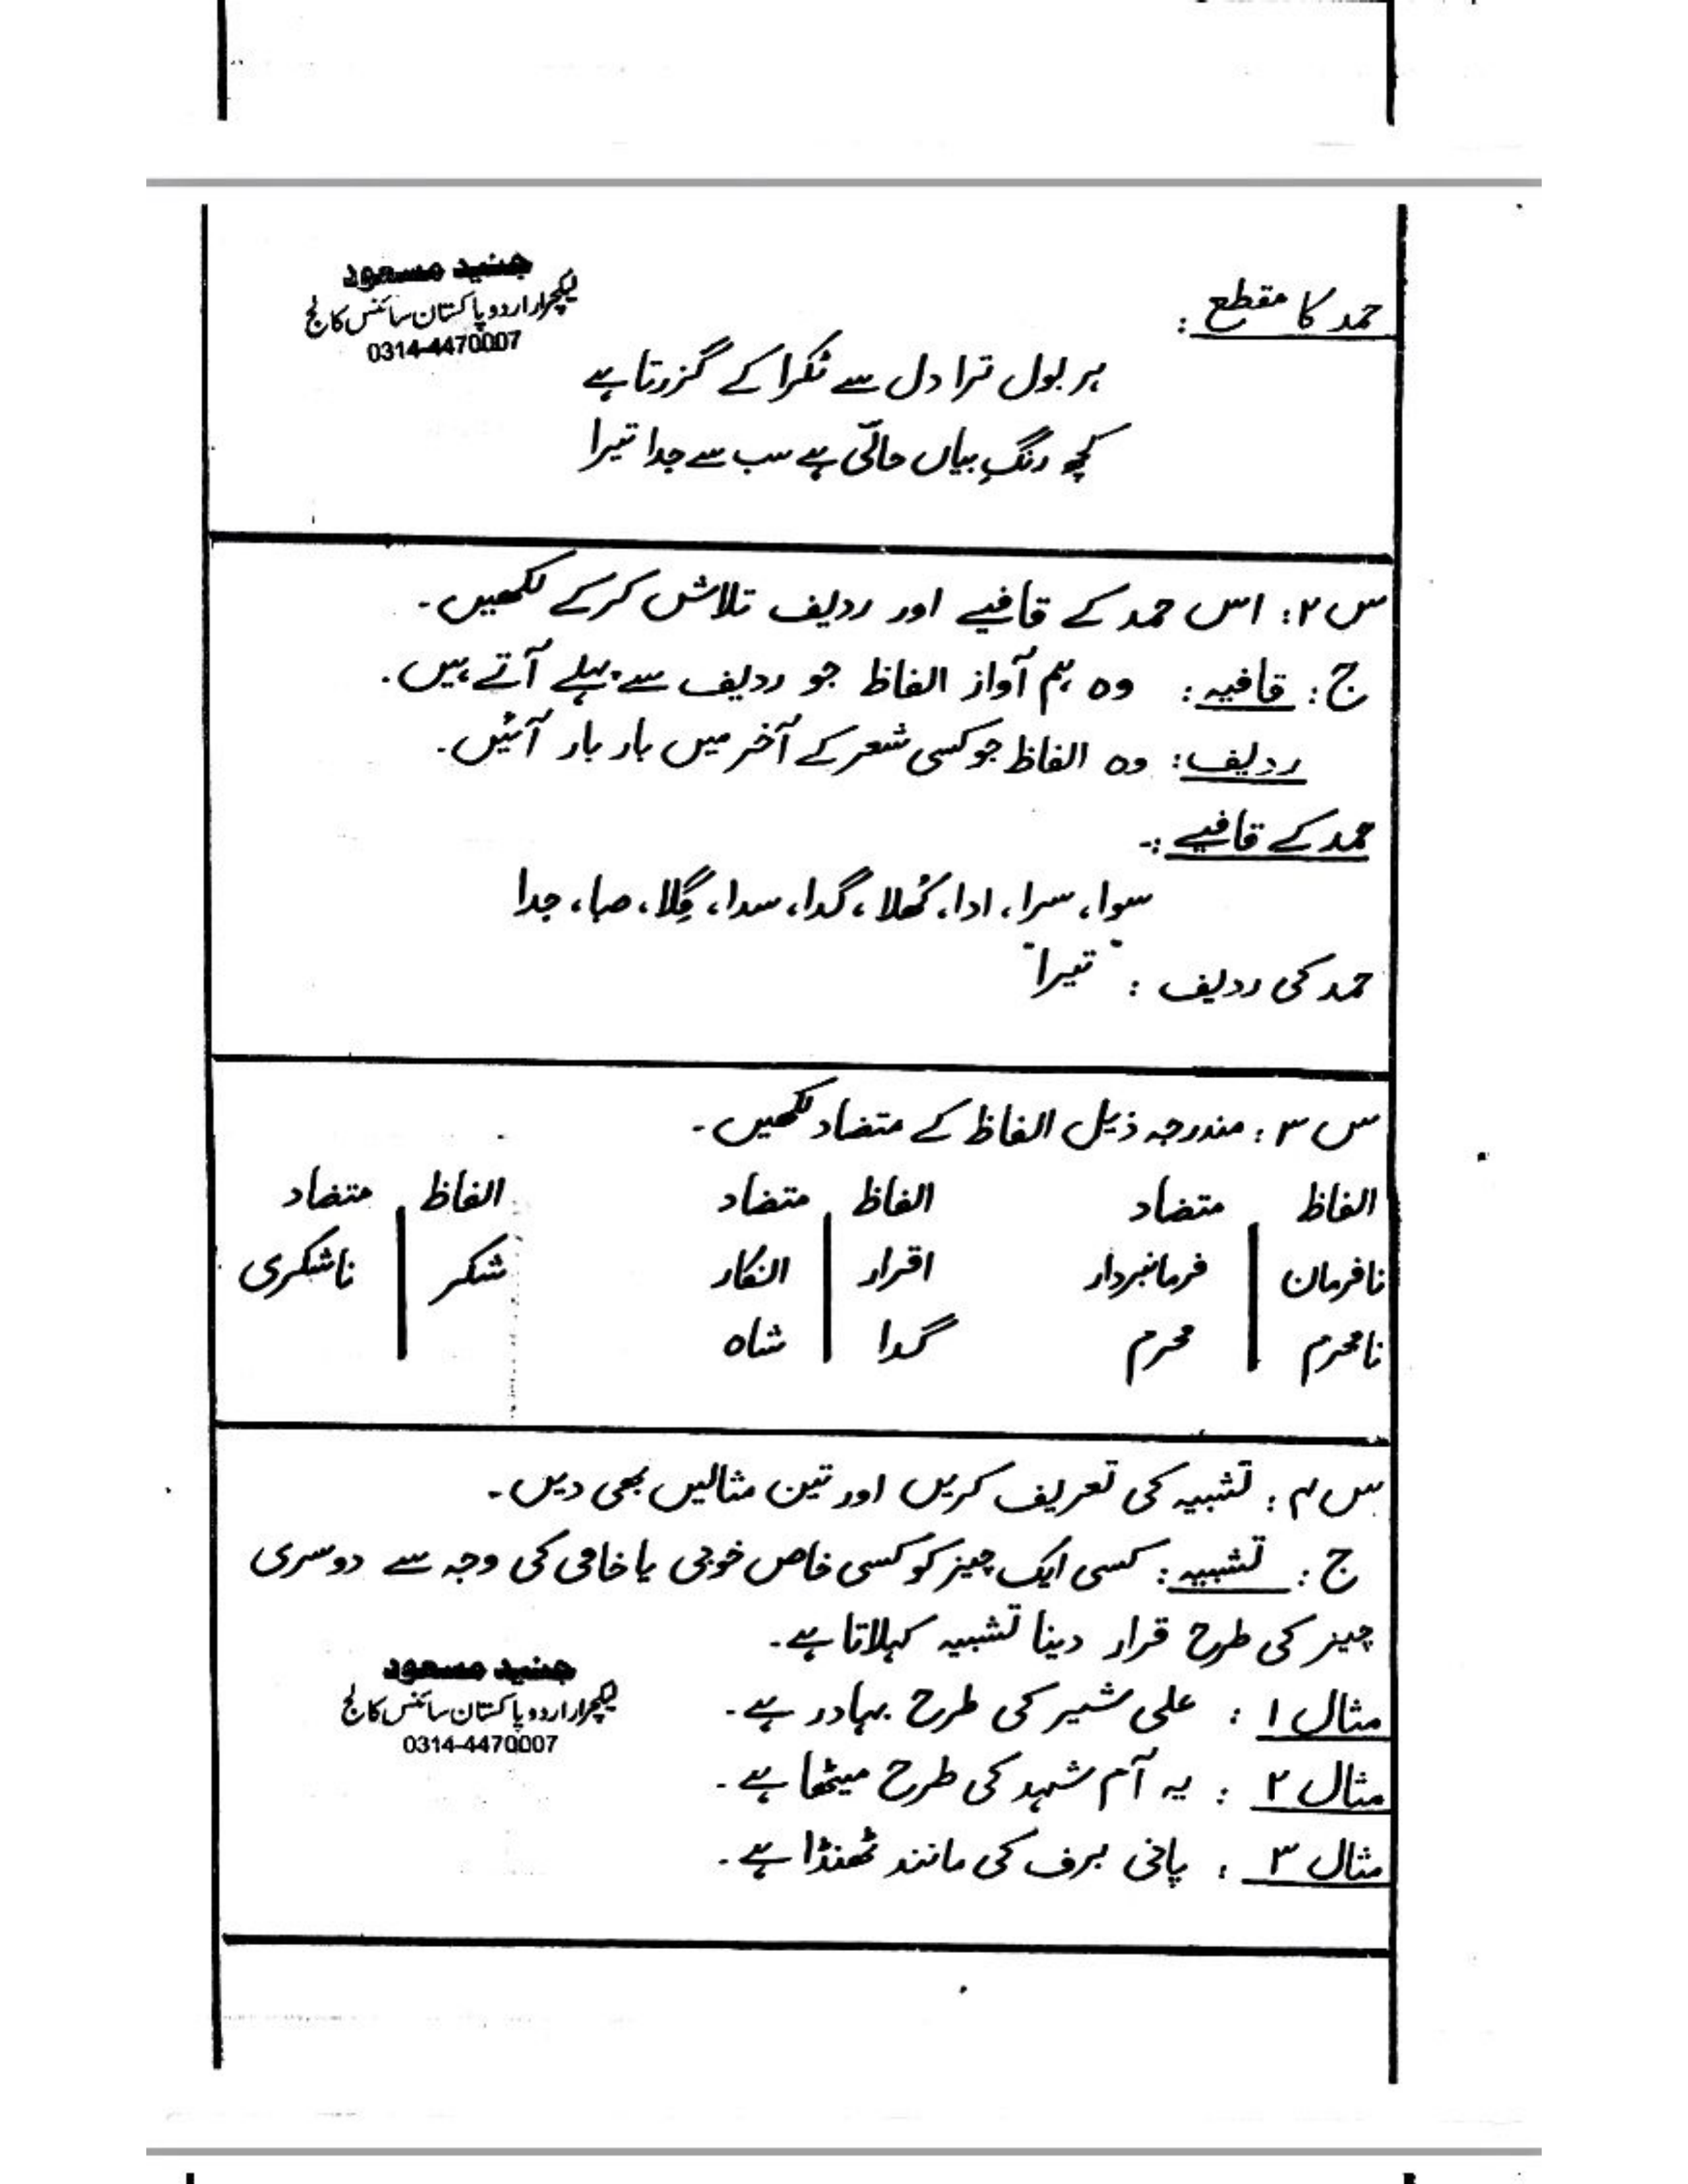 جنید مسعود
لیکچرار اردو پاکستان سائنس کالج
0314-4470007
حمد کا مقطع :
ہر بول ترا دل سے ٹکرا کے گزرتا ہے
کچھ رنگِ بیاں حالیؔ ہے سب سے جدا تیرا
س ۲ : اس حمد کے قافیے اور ردیف تلاش کرکے لکھیں۔
ج : قافیہ : وہ ہم آواز الفاظ جو ردیف سے پہلے آتے ہیں۔
ردیف : وہ الفاظ جو کسی شعر کے آخر میں بار بار آئیں۔
حمد کے قافیے :-
سوا، سرا، ادا، کُھلا، گدا، سدا، گِلا، صبا، جدا
حمد کی ردیف : "تیرا"
س ۳ : مندرجہ ذیل الفاظ کے متضاد لکھیں۔
الفاظ متضاد الفاظ متضاد الفاظ متضاد
نافرمان فرمانبردار اقرار انکار شکر ناشکری
نامحرم محرم گدا شاہ
س ۴ : تشبیہ کی تعریف کریں اور تین مثالیں بھی دیں۔
ج : تشبیہ : کسی ایک چیز کو کسی خاص خوبی یا خامی کی وجہ سے دوسری
چیز کی طرح قرار دینا تشبیہ کہلاتا ہے۔
جنید مسعود
لیکچرار اردو پاکستان سائنس کالج
0314-4470007
مثال ۱ : علی شیر کی طرح بہادر ہے۔
مثال ۲ : یہ آم شہد کی طرح میٹھا ہے۔
مثال ۳ : پانی برف کی مانند ٹھنڈا ہے۔